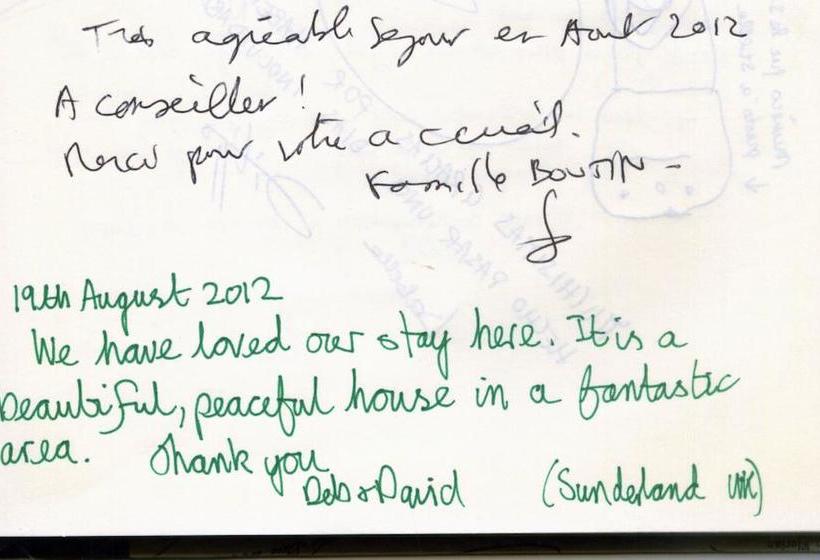 Très agréable Séjour en Août 2012
A conseiller !
Merci pour votre accueil.
Famille BOUTIN -
19th August 2012
We have loved our stay here. It is a
beautiful, peaceful house in a fantastic
area. Thank you
Deb & David (Sunderland UK)